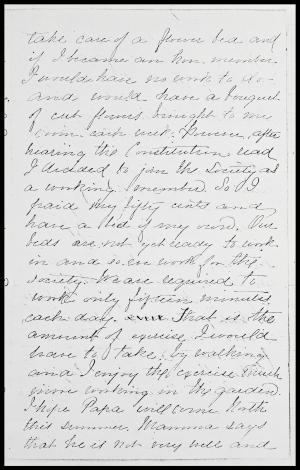 take care of a flower bed and
if I became an hon. member
I would have no work to do
and would have a bouquet
of cut flowers brought to me
each week. However, after
hearing the Constitution read
I decided to join the Society as
a working member. So I
paid my fifty cents and
have a bed of my own. Our
beds are not yet ready to work
in and so we work for the
Society. We are required to
work only fifteen minutes
each day. That is the
amount of exercise I would
have to take by walking
and I enjoy the exercise much
more working in the garden.
I hope Papa will come North
this summer. Mamma says
that he is not very well and